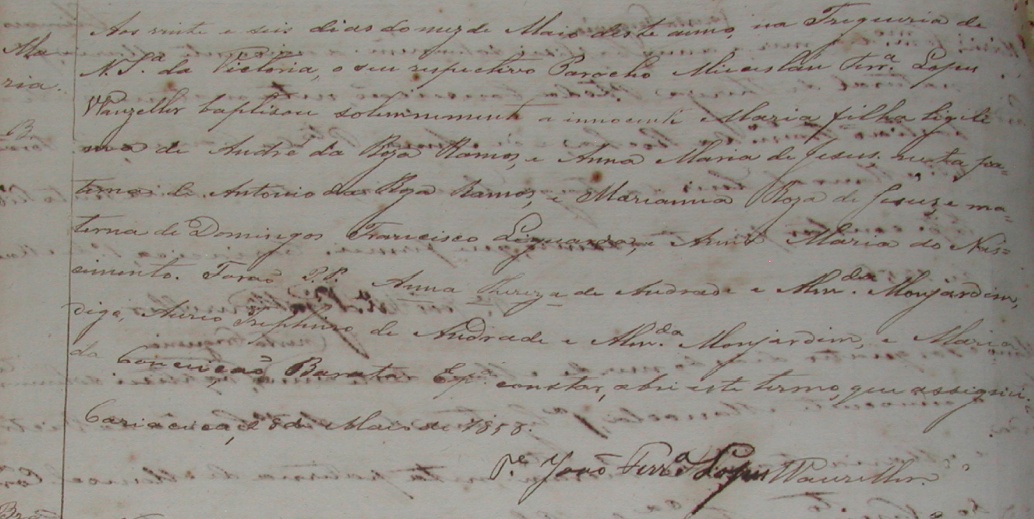 Aos vinte e seis dias do mez de Maio deste anno, na Freguezia de
Ma
N. Sª. da Victoria, o seu respectivo Parocho Miceslau Ferrª. Lopes
ria.
Wanzeller baptisou solemnemente a innocente Maria filha legiti
ma de André da Roza Ramos, e Anna Maria de Jesus, neta pa-
terna de Antonio da Roza Ramos, e Marianna Roza de Jesus, e ma-
terna de Domingos Francisco e Anna Maria do Nas-
cimento. Forão P.P. Anna Tereza de Andrade e Almda. Monjardim,
digo, de Andrade e Almda. Monjardim, e Maria
da Conceição Barata. E pª. constar, abri este termo, que assignei.
Cariacica, de Maio de 1858.
Pe. João Ferrª. Lopes Wanzeller.